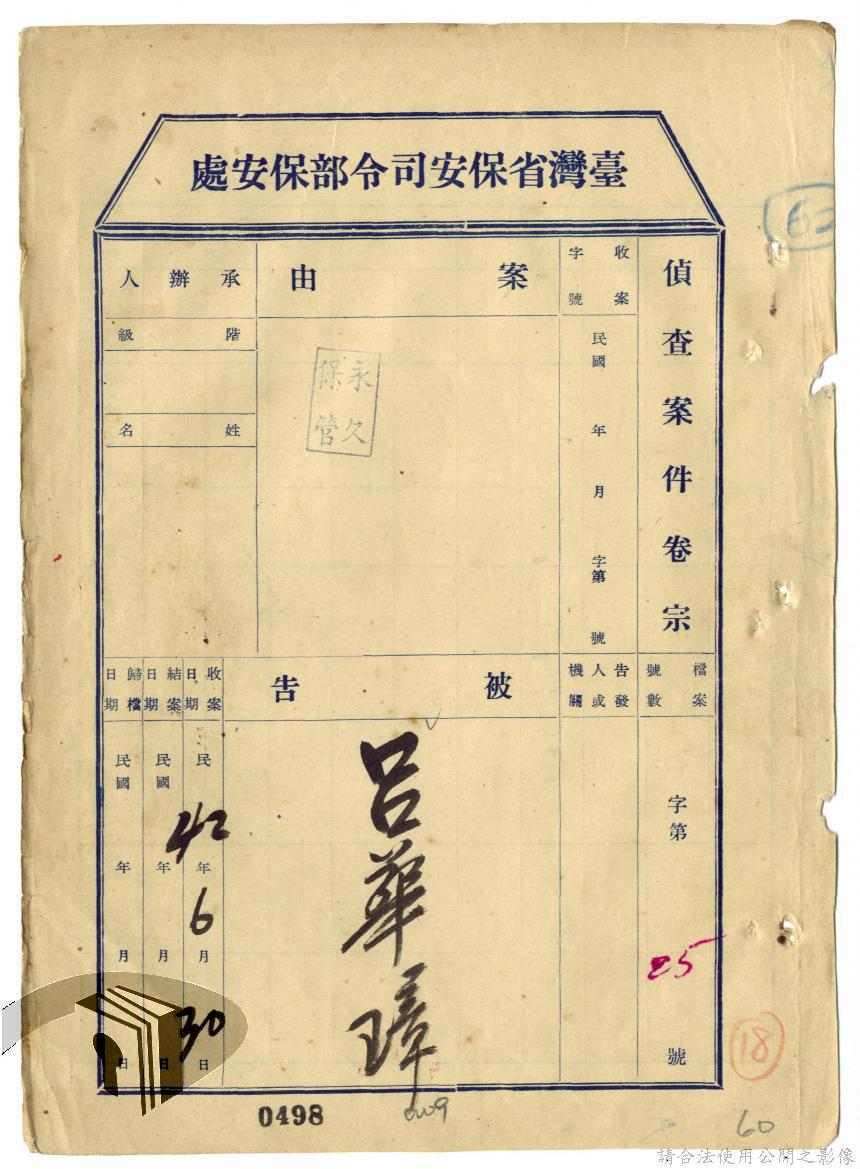 臺灣省保安司令部保安處
62
偵查案件卷宗
收案字號
民國 年 月 字第 號
案由
永久保管
承辦人
階級
姓名
檔案號數
字第 25 號
告發人或機關
被告
呂華璋
收案日期
民 42年6月30日
結案日期
民國 年 月 日
歸檔日期
民國 年 月 日
18
0498
60
請合法使用公開之影像